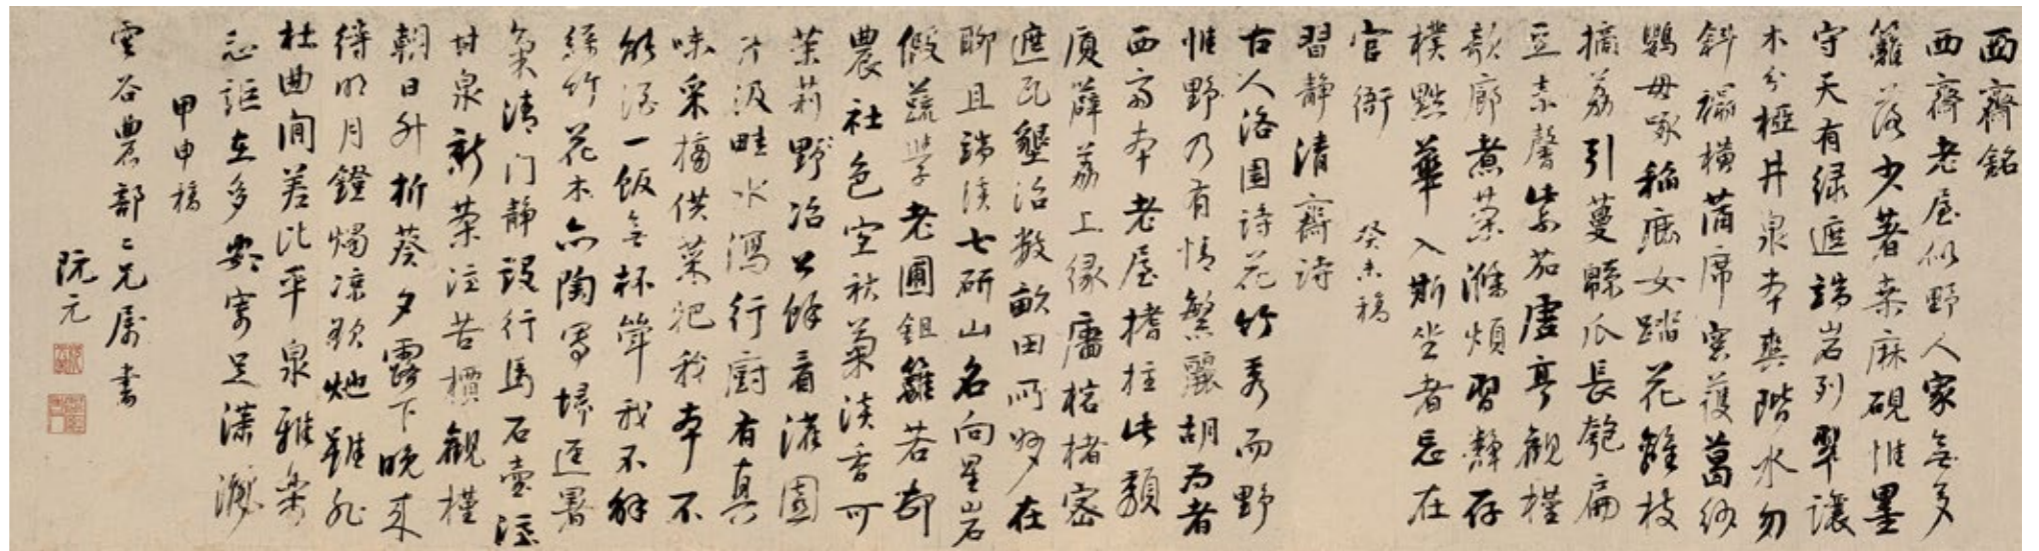 西齋銘
西齋老屋似野人家無多
籬落少著桑麻硯惟墨
守天有绿遮端岩列翠讓
木分極井泉奔與階水勿
斜榻橫蒲席窗護葛紗
鸚母啄稻燕女踏花離枝
摘荔引蔓緜瓜長匏扁
豆素馨紫茄虛亭觀槿
欹廊煮茶滌煩習靜存
樸黜華入斯坐者忘在
官衙 癸未稿
習靜清齋詩
古人洛園詩花竹秀而野
惟野乃有情繁麗胡为者
西齋本老屋搘拄此頹
廈薜荔上缘墉楛楮密
遮瓦墾治数畝田所好在
聊且端溪七研山名向星岩
假蔬學老圃鉏籬若却
農社色空秋菊淡香可
茉莉野冶公餘看灌園
片汲畦水瀉行廚有真
味采擷供菜把我本不
能酒一飯無杯斝我不解
絲竹花木亦陶寫掃逕暑
氣清门靜設行馬石壺渟
甘泉新茶注苦檟觀槿
朝日升折葵夕露下晚来
待明月鐙燭凉欲灺雖非
杜曲间差比平泉雅樂
忘詎在多與寄足潇灑
甲申稿
雲谷農部二兄屬書
阮元